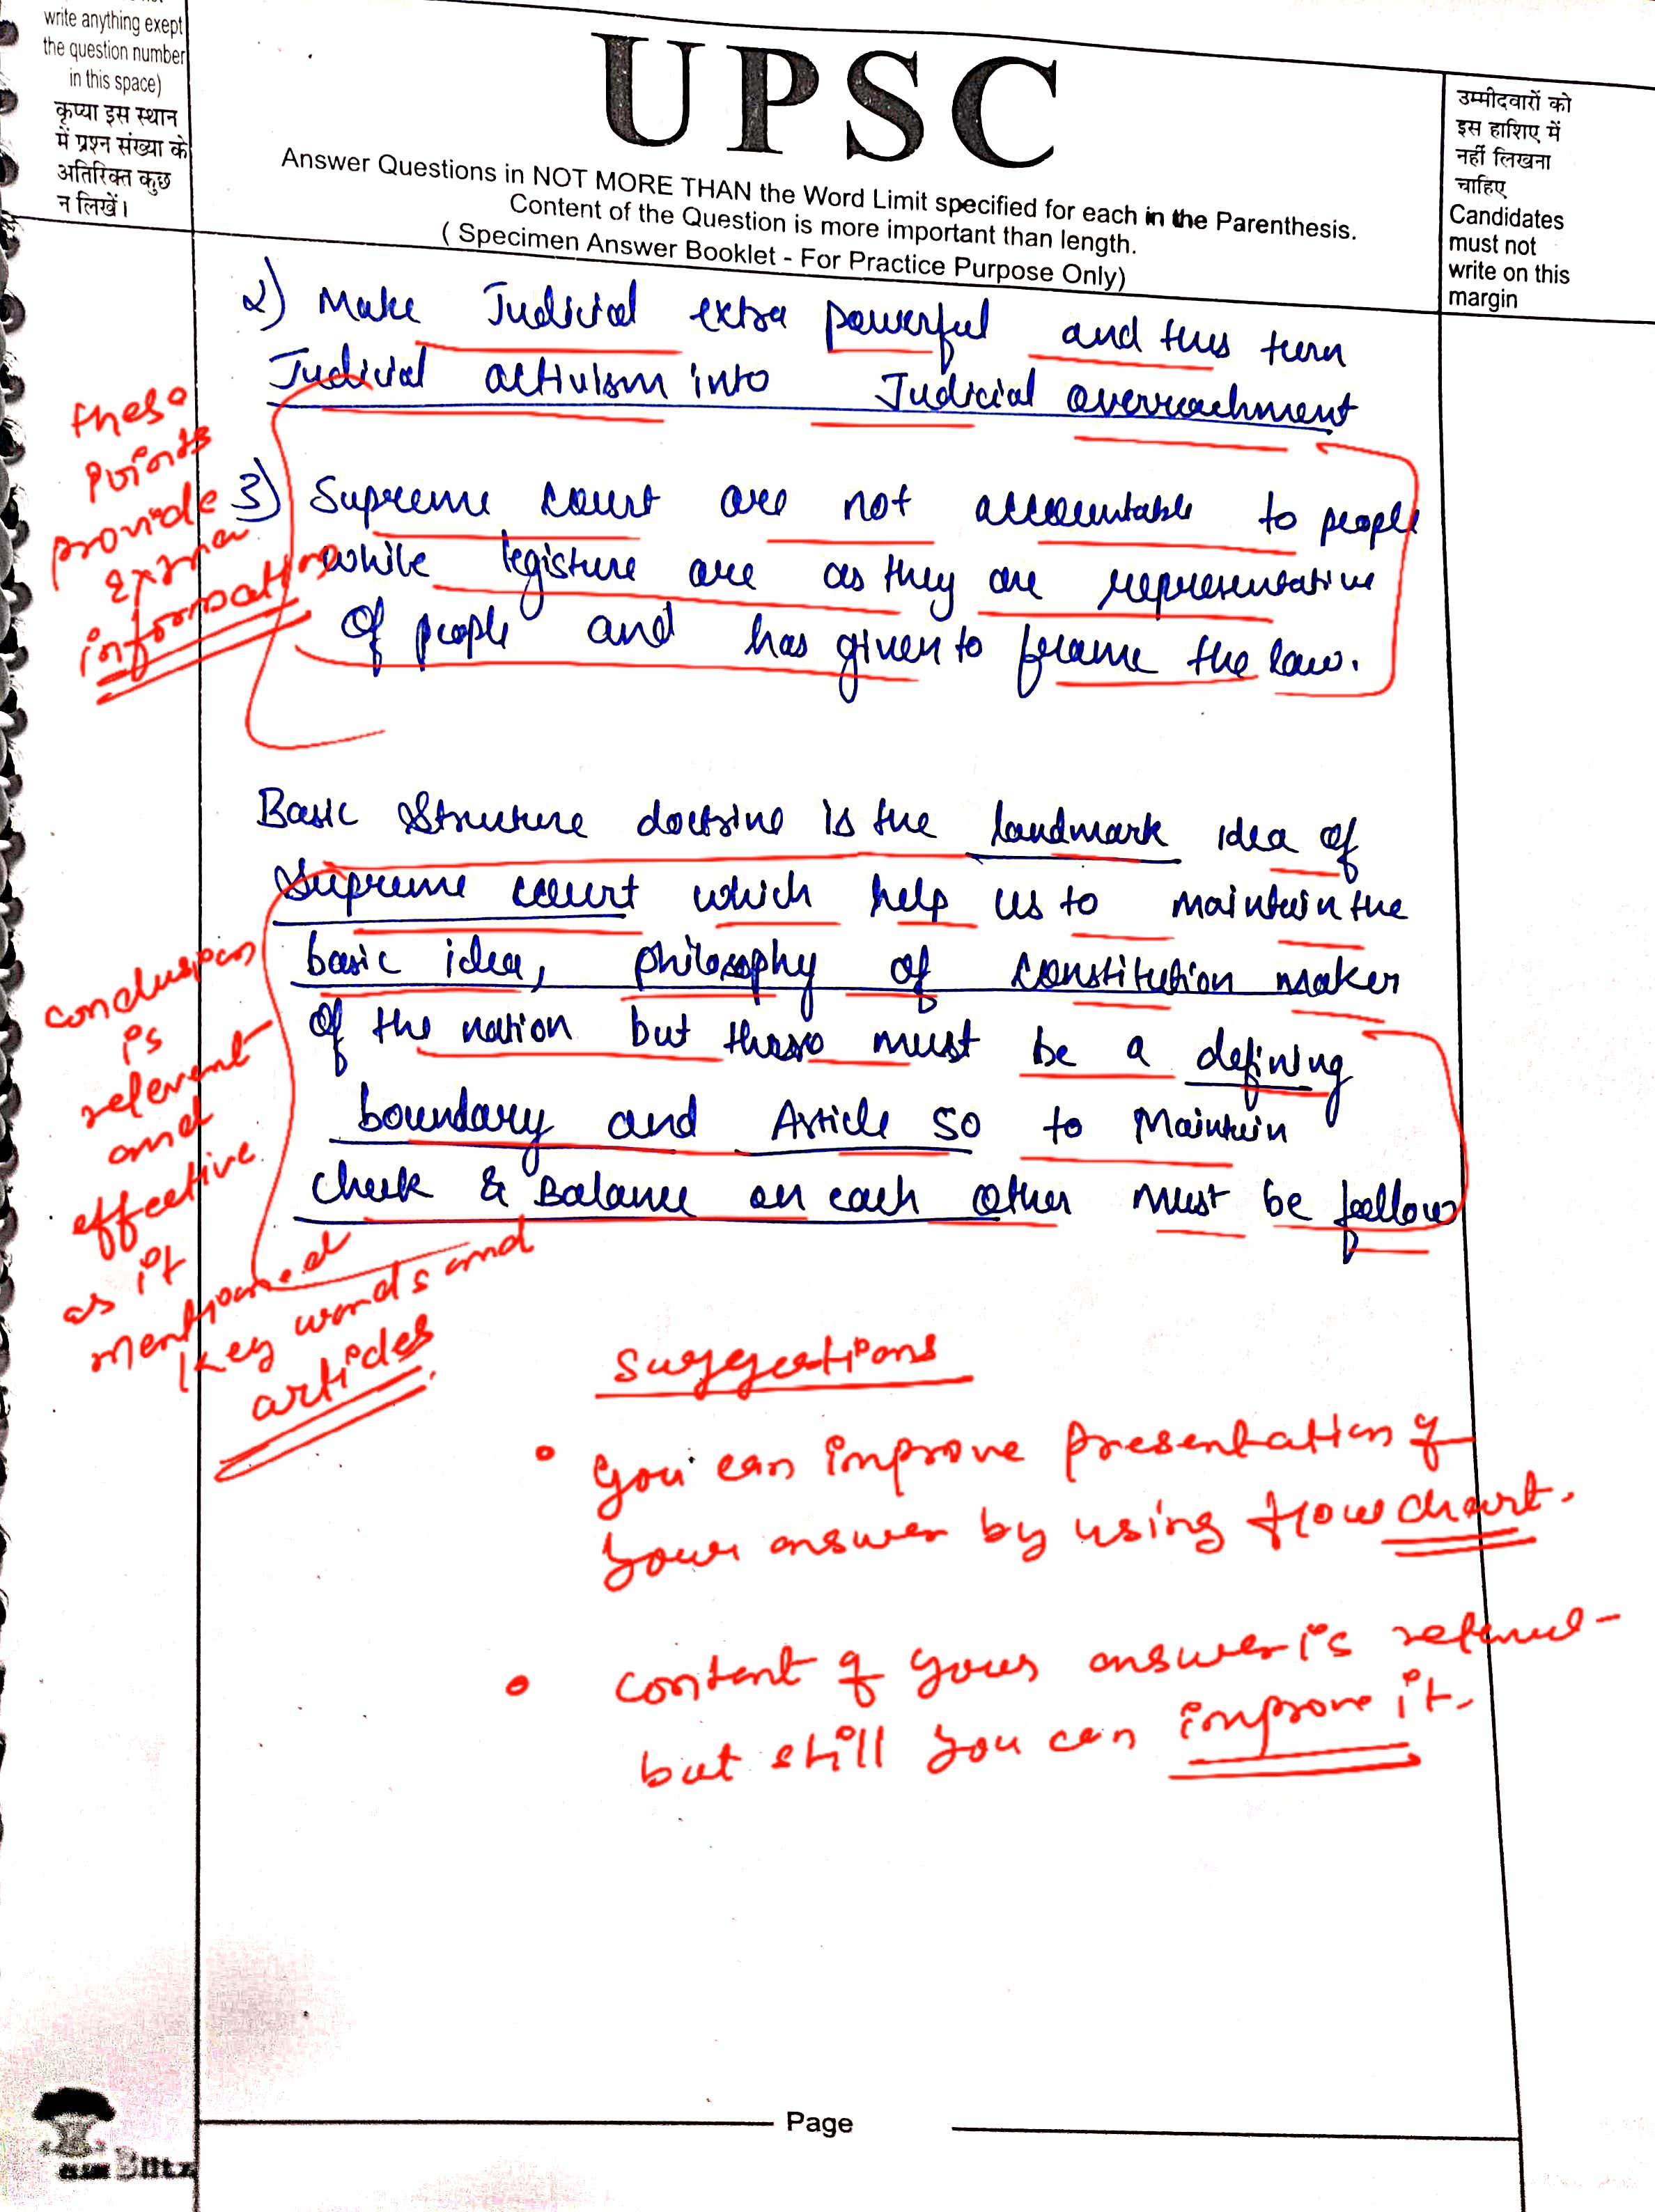 write anything exept
the question number
in this space)
कृप्या इस स्थान
में प्रश्न संख्या के
अतिरिक्त कुछ
न लिखें।
UPSC
Answer Questions in NOT MORE THAN the Word Limit specified for each in the Parenthesis.
Content of the Question is more important than length.
( Specimen Answer Booklet - For Practice Purpose Only)
उम्मीदवारों को
इस हाशिए में
नहीं लिखना
चाहिए
Candidates
must not
write on this
margin
2) Make Judicial extra powerful and this turn
Judicial activism into Judicial overreachment
3) Supreme court are not accountable to people
while legisture are as they are representative
of people and has given to frame the law.
these
points
provide
extra
information
Basic Structure doctrine is the landmark idea of
Supreme court which help us to maintain the
basic idea, philosophy of constitution maker
of the nation but there must be a defining
boundary and Article so to Maintain
check & Balance on each other must be follow
conclusion
is
relevent
and
effective
as it
mentioned
key words and
articles
Suggestions
• you can improve presentation of
your answer by using flowchart.
• content of your answer is
but still you can improve it.
Page